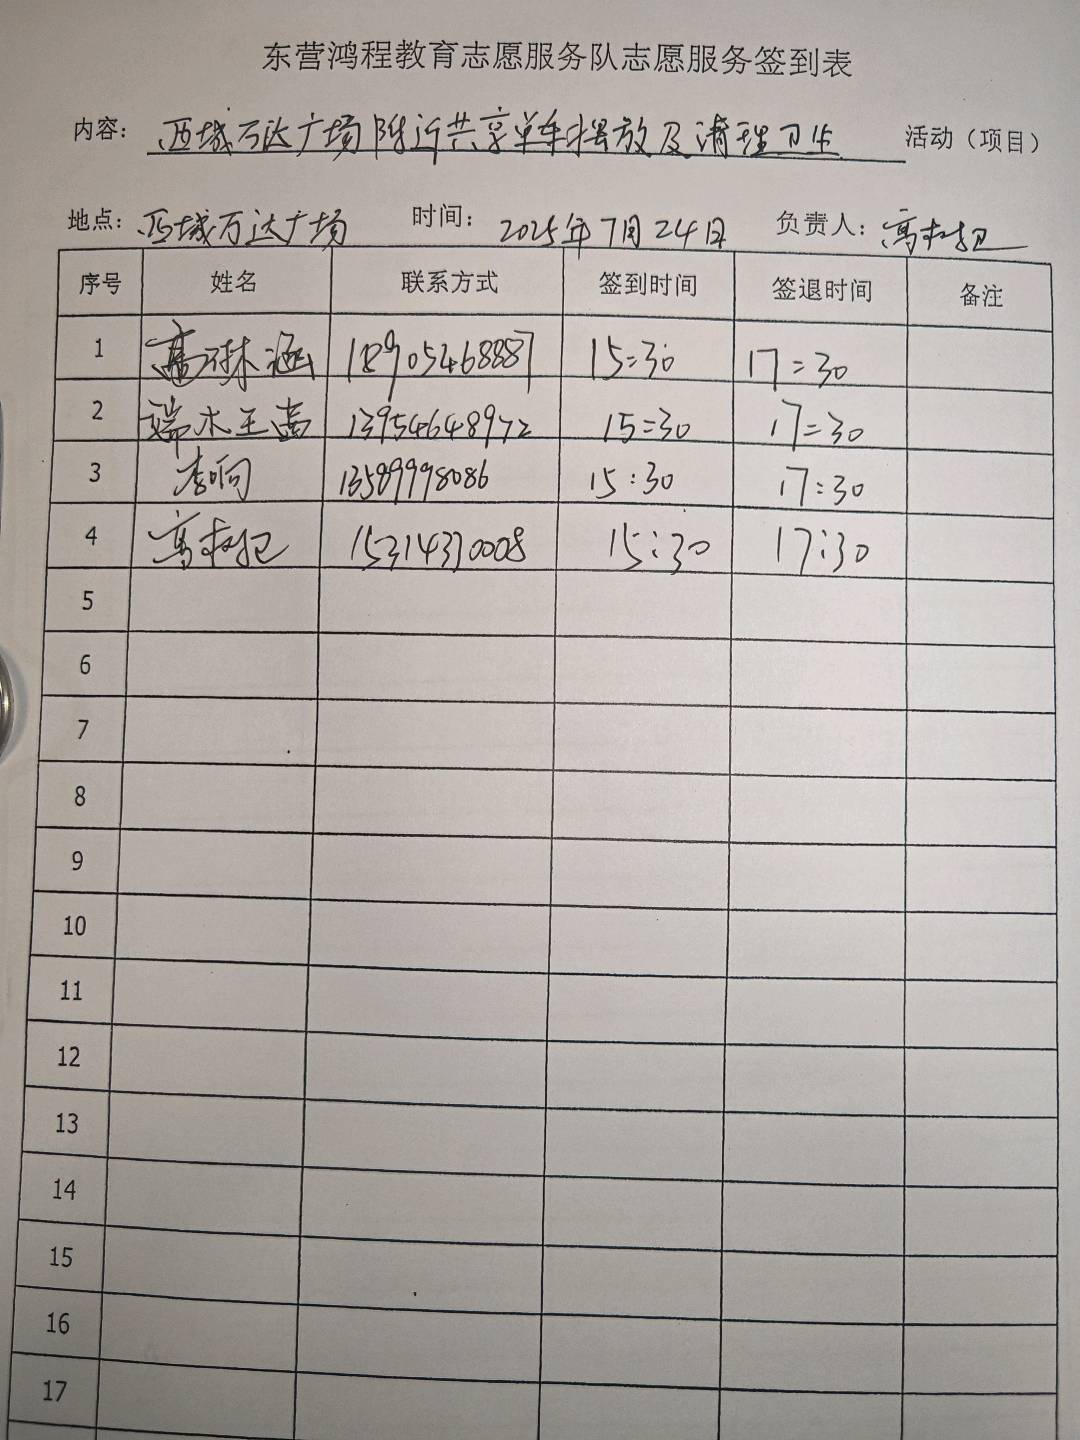 东营鸿程教育志愿服务队志愿服务签到表
内容： 西城万达广场附近共享单车摆放及清理卫生 活动（项目）
地点：西城万达广场 时间：2025年7月24日 负责人：高
序号 姓名 联系方式 签到时间 签退时间 备注
1 高琳涵 18905468887 15:30 17:30
2 端木王 13954648972 15:30 17:30
3 李响 13589998086 15:30 17:30
4 高 15314370008 15:30 17:30
5
6
7
8
9
10
11
12
13
14
15
16
17